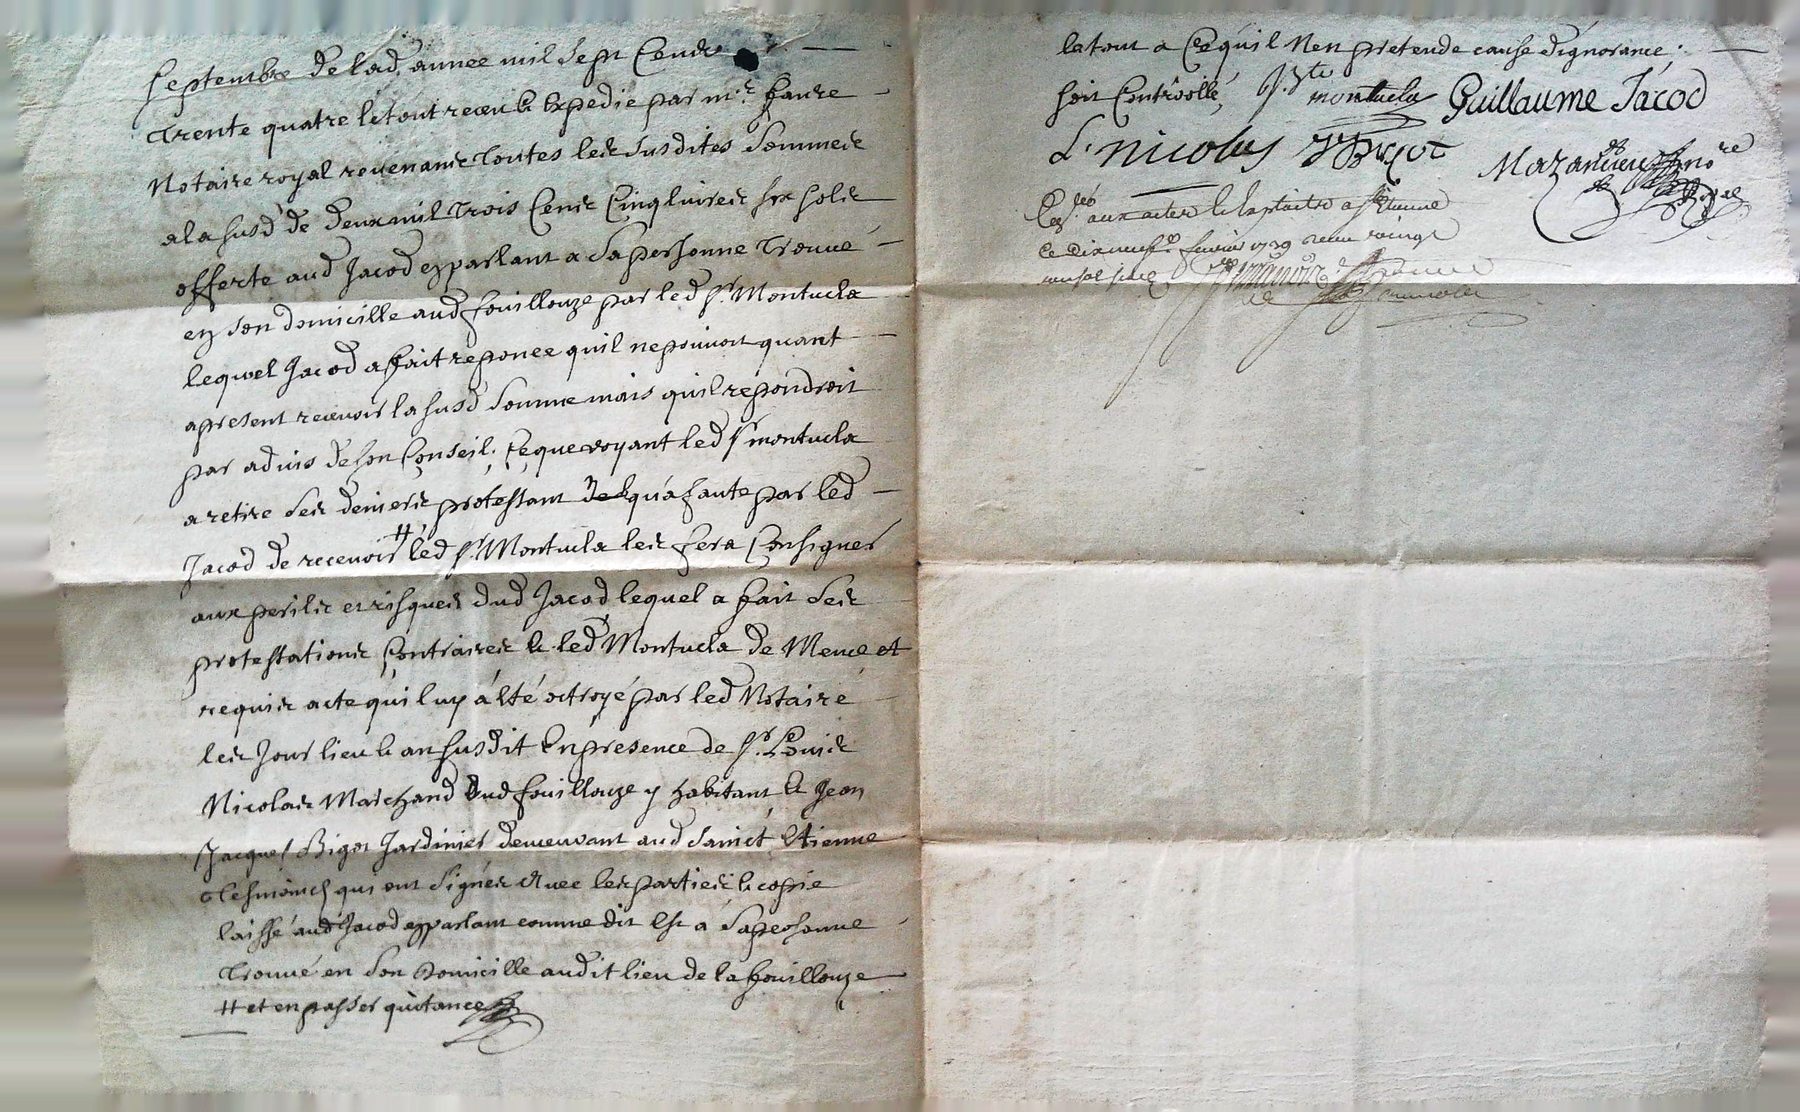 Septembre de lad. annee mil sept Cends
trente quatre le tout receu & Expedie par mr. faure
Notaire royal revenants toutes les susdites Sommes
a la susd de deux mil trois Cents Cinq livres six sols
offerte aud Jacod en parlant a Sa personne trouvé
en son domicille aud fouillouze par led sr. Montucla
lequel Jacod a fait reponce quil ne pouvoit quant
apresent recevoir la susd Somme mais quil répondroit
par advis de son Conseil; Ce que voyant led sr montucla
a retire ses deniers protestant qua faute par led
Jacod de recevoir # led sr. Montucla les fera Consigner
aux perils et risques dud Jacod lequel a fait ses
protestations Contraires & led Montucla de Meme et
requis acte qui luy a été octroyé par led Notaire
les Jour lieu & an susdit En presence de sr. Louis
Nicolas Marchand dud fouillouze y habitant & Jean
Jacques Bigot Jardinier demeurant aud Sainct Etienne
tesmoins qui ont Signés Avec les parties & copie
laissé aud Jacod en parlant comme dit Est a Sa personne
trouvé en Son Domicille audit lieu de la fouillouze
# et en passer quitance
le tout a Ce quil Nen pretende cause dignorance;
soit Controollé, montucla Guillaume Jacod
L. nicolas Bigot Mazandieu no re Royal
aux actes a st Etienne
ce dix neuf fevrier 1739